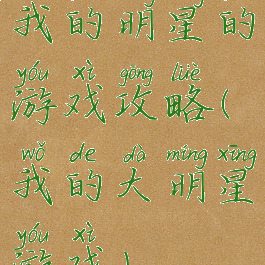 我的明星的
yóu xì gōng lüè
游戏攻略(
wǒ de dà míng xīng
我的大明星
yóu xì
游戏)